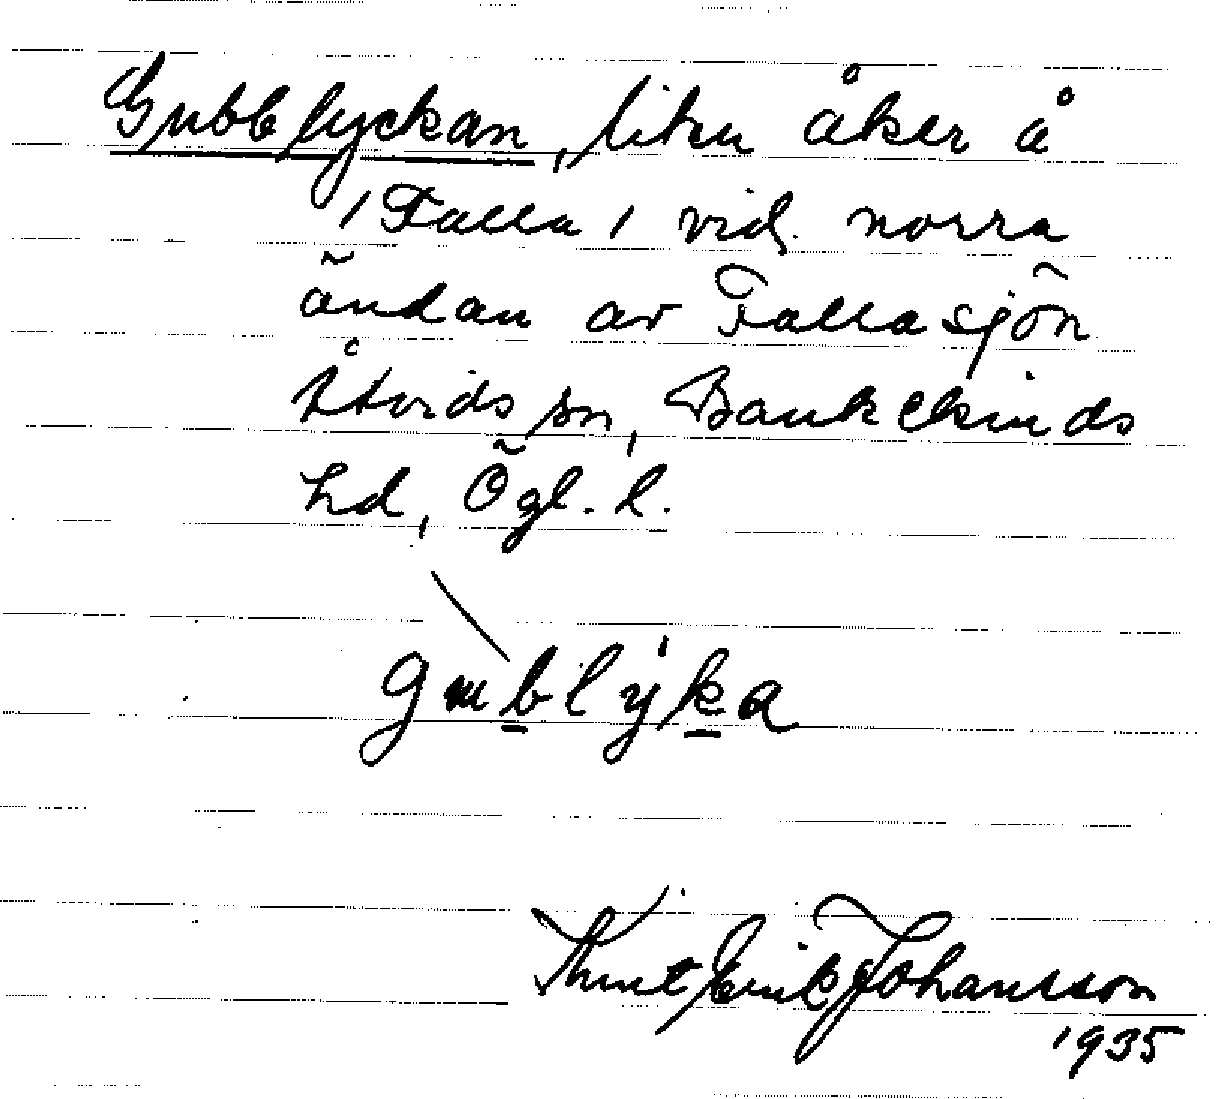 Gubblyckan, liten åker å
/Falla/ vid norra
ändan av Fallasjön
Åtvids sn, Bankekinds
hd, Ögl. l.
gɯblýka
Knut Erik Johansson
1935